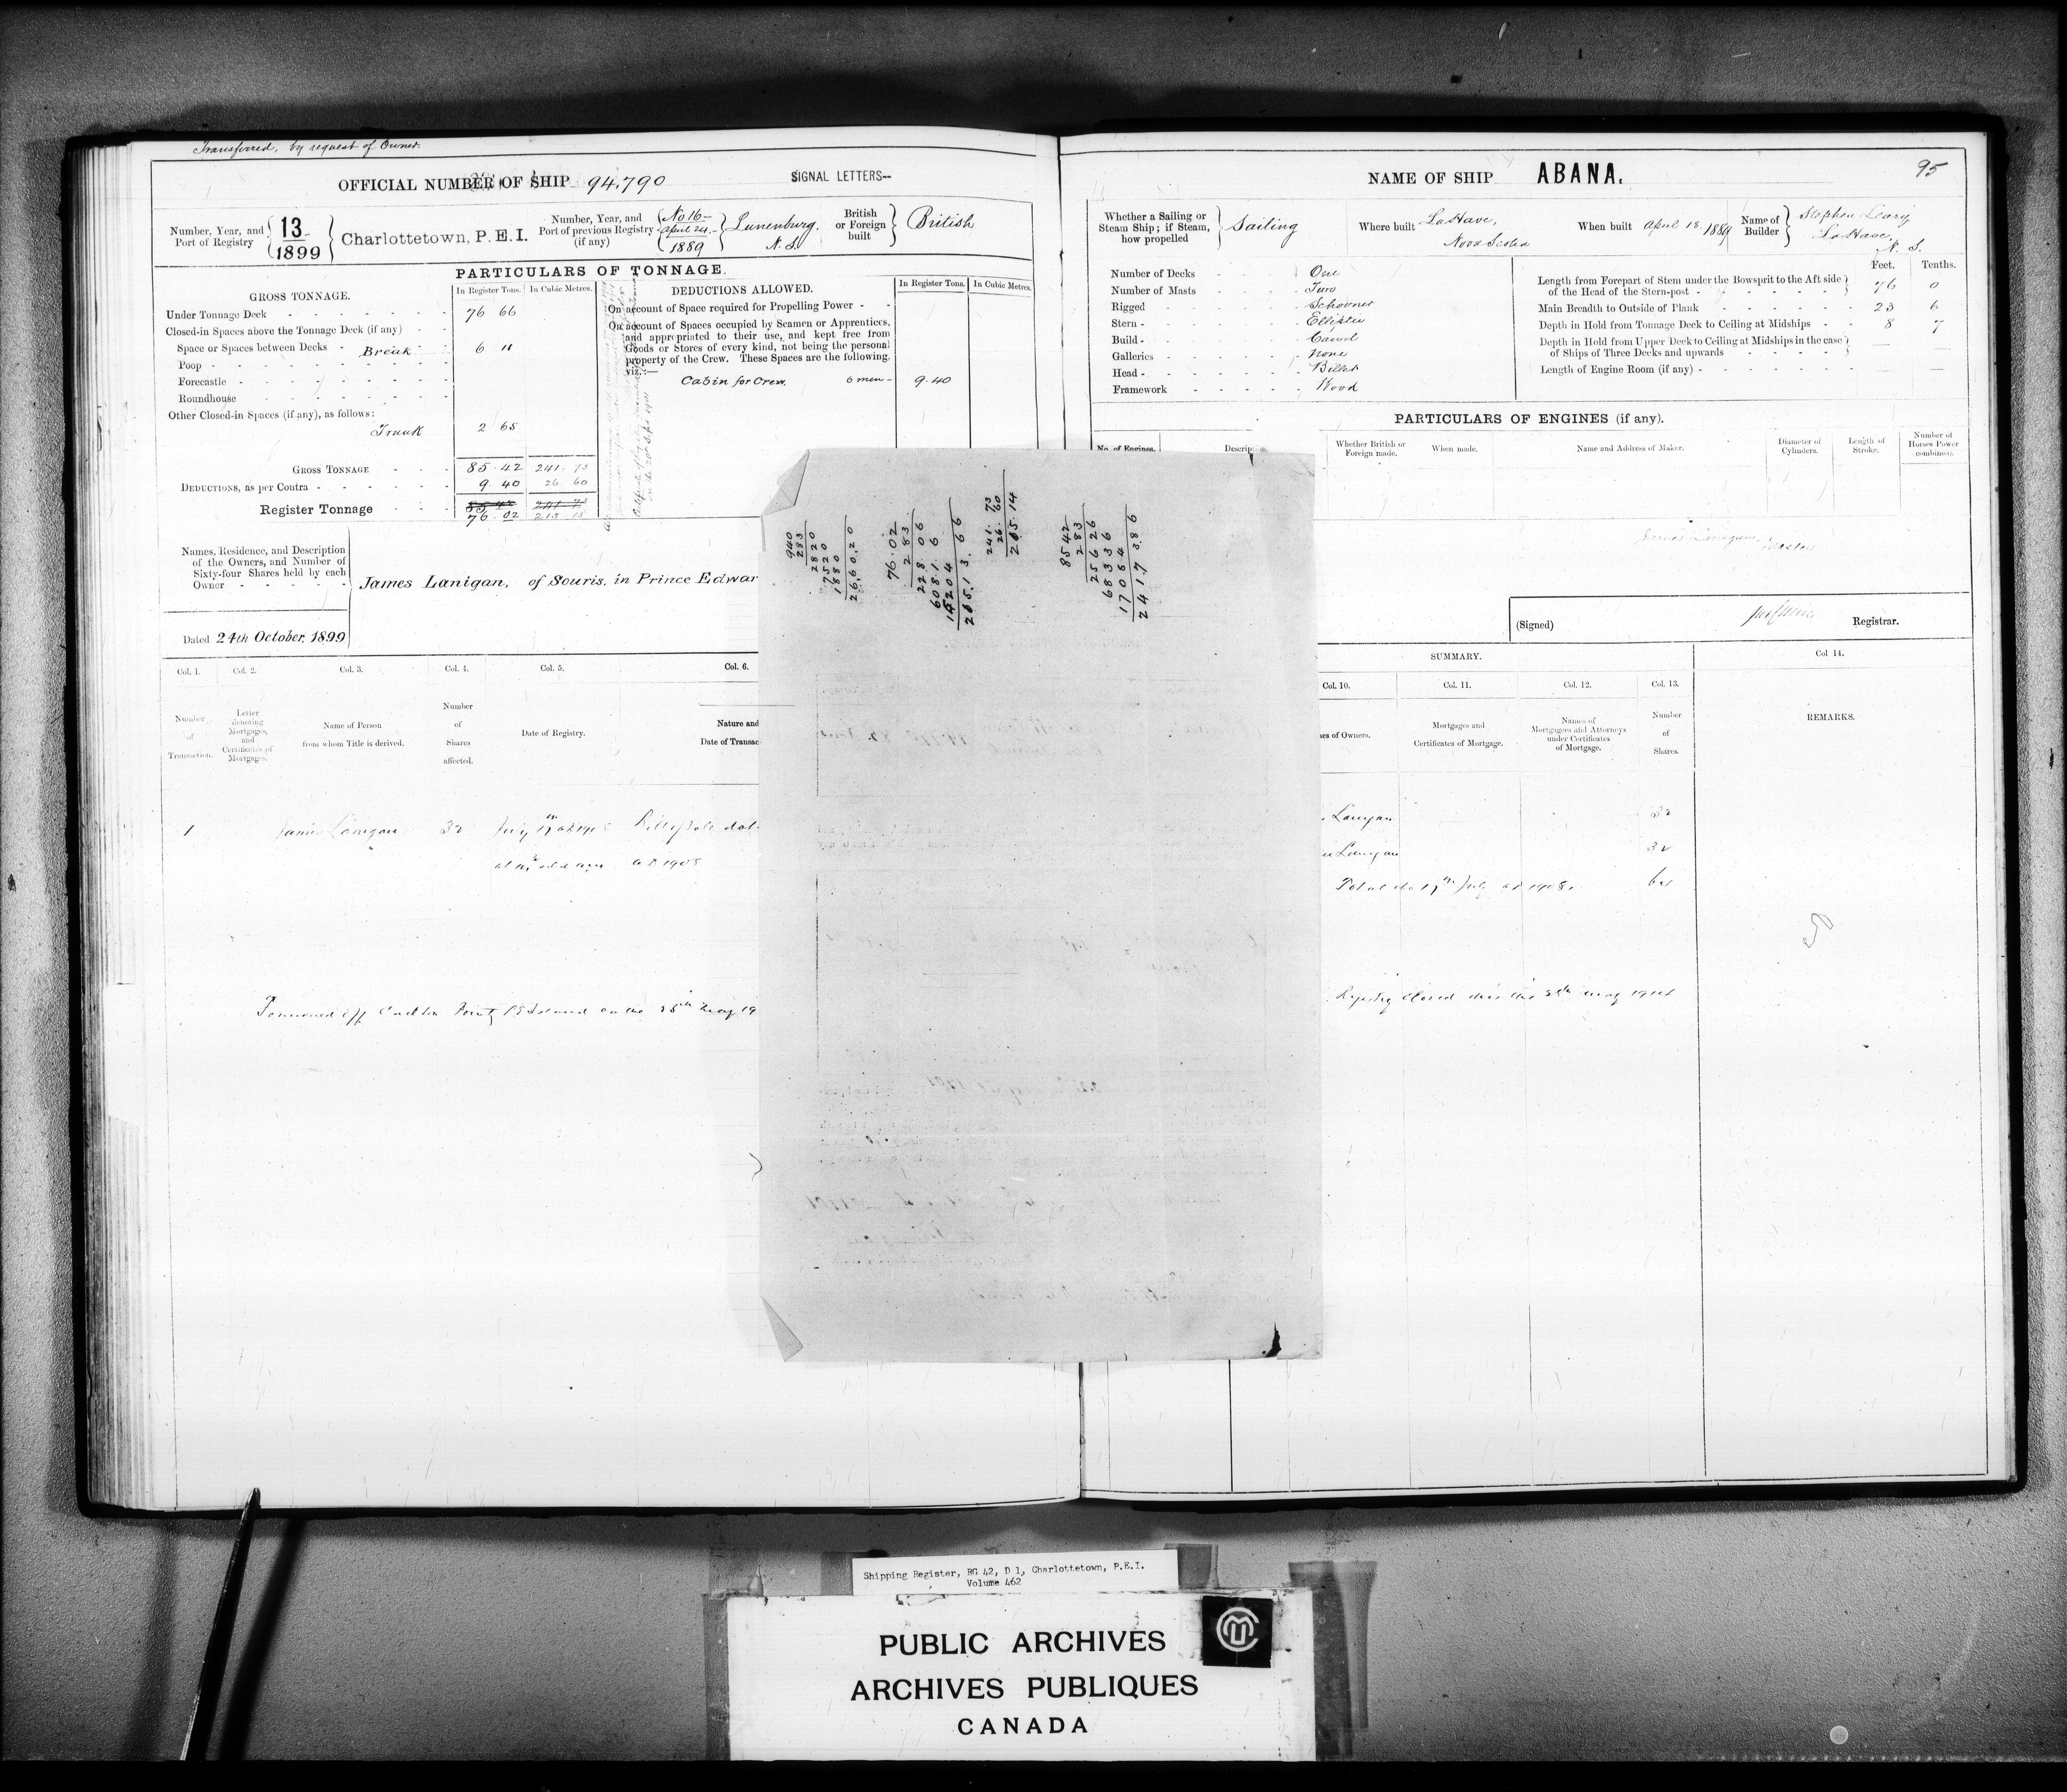 Transferred, by request of Owner.
OFFICIAL NUMBER OF SHIP 94,790
SIGNAL LETTERS--
Number, Year, and Port of Registry
13
1899
Charlottetown, P.E.I.
Number, Year, and Port of previous Registry (if any)
No 16-
April 24.-
1889
Lunenburg.
N. S.
British or Foreign built
British
PARTICULARS OF TONNAGE.
GROSS TONNAGE.
In Register Tons.
In Cubic Metres.
Under Tonnage Deck 76 66
Closed-in Spaces above the Tonnage Deck (if any)
Space or Spaces between Decks - Break 6 11
Poop
Forecastle
Roundhouse
Other Closed-in Spaces (if any), as follows:
Trunk 2 65
GROSS TONNAGE 85.42 241.73
DEDUCTIONS, as per Contra 9 40 26 60
Register Tonnage
76.02 215 13
DEDUCTIONS ALLOWED.
In Register Tons.
In Cubic Metres.
On account of Space required for Propelling Power
On account of Spaces occupied by Seamen or Apprentices,
and appropriated to their use, and kept free from
Goods or Stores of every kind, not being the personal
property of the Crew. These Spaces are the following.
viz.:—
Cabin for Crew. 6 men - 9.40
Names, Residence, and Description
of the Owners, and Number of
Sixty-four Shares held by each
Owner
James Lanigan, of Souris, in Prince Edwar
Dated 24th October, 1899
Col. 1.
Col. 2.
Col. 3.
Col. 4.
Col. 5.
Col. 6.
Number of Transaction.
Letter denoting Mortgages, and Certificates of Mortgages.
Name of Person from whom Title is derived.
Number of Shares affected.
Date of Registry.
Nature and
Date of Transac
1 James Lanigan 32 July 17th AD 1908
AD 1908
on the 28th May 19
NAME OF SHIP ABANA.
95
Whether a Sailing or Steam Ship; if Steam, how propelled
Sailing
Where built
LaHave,
Nova Scotia
When built April 18 1889
Name of Builder
Stephen Leary
LaHave
N. S.
Number of Decks One
Number of Masts Two
Rigged Schooner
Stern - Elliptic
Build - Carvel
Galleries None
Head - Billet
Framework Wood
Feet. Tenths.
Length from Forepart of Stem under the Bowsprit to the Aft side
of the Head of the Stern-post - 76 0
Main Breadth to Outside of Plank 23 6
Depth in Hold from Tonnage Deck to Ceiling at Midships 8 7
Depth in Hold from Upper Deck to Ceiling at Midships in the case
of Ships of Three Decks and upwards
Length of Engine Room (if any)
PARTICULARS OF ENGINES (if any).
No. of Engines.
Whether British or Foreign made.
When made.
Name and Address of Maker.
Diameter of Cylinders.
Length of Stroke.
Number of Horses Power combined.
James Lanigan, Master
(Signed)
Registrar.
SUMMARY.
Col. 10.
Col. 11.
Col. 12.
Col. 13.
Col 14.
es of Owners.
Mortgages and Certificates of Mortgage.
Names of Mortgagees and Attorneys under Certificates of Mortgage.
Number of Shares.
REMARKS.
Lanigan 32
Lanigan 32
17th July AD 1908 64
Registry closed this the 28th May 1914
940
283
2820
7520
1880
26.60.20
76.02
283
228 06
6081 6
15204
215.13.66
241.73
26.60
215.14
85 42
283
256 26
6833 6
17084
241.7 386
Shipping Register, RG 42, D 1, Charlottetown, P.E.I.
Volume 462
PUBLIC ARCHIVES
ARCHIVES PUBLIQUES
CANADA